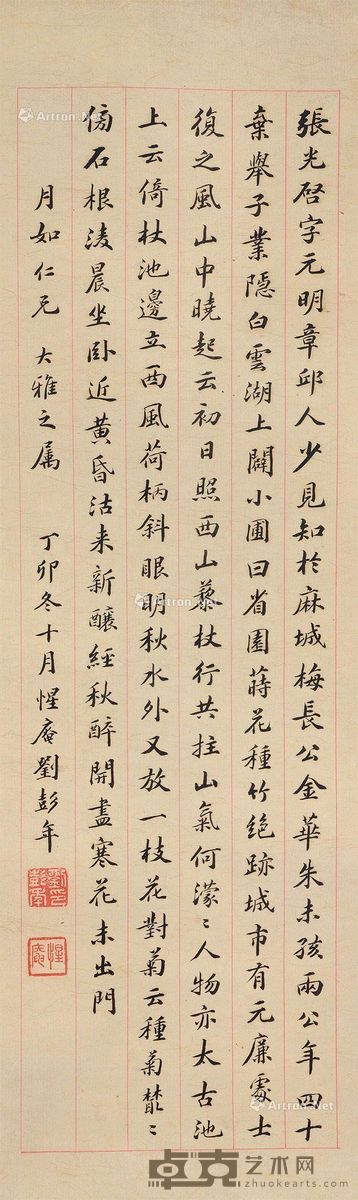 張光啓字元明章邱人少見知於麻城梅長公金華朱未孩兩公年四十
棄舉子業隱白雲湖上闢小圃曰省園蒔花種竹絕跡城市有元廉處士
復之風山中曉起云初日照西山藜杖行共拄山氣何濛〻人物亦太古池
上云倚杖池邊立西風荷柄斜眼明秋水外又放一枝花對菊云種菊叢〻
傍石根淩晨坐臥近黃昏沽來新釀經秋醉開盡寒花未出門
月如仁兄大雅之属 丁卯冬十月惺庵劉彭年
劉彭年印
惺庵
Artron.Net
Artron.Net
Artron.Net
Artron.Net
卓克艺术网
www.zhuokearts.com